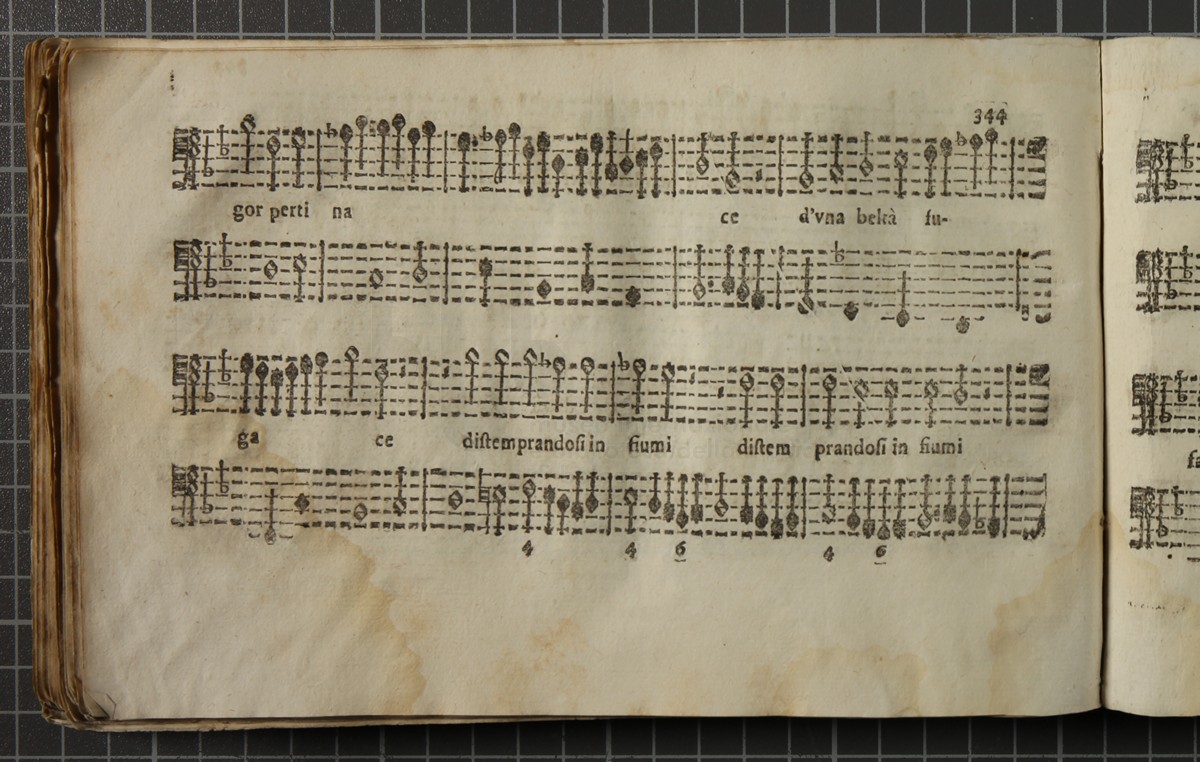 344
gor perti na ce d'vna beltà fu-
ga ce distemprandosi in fiumi distem prandosi in fiumi
4 4 6 4 6